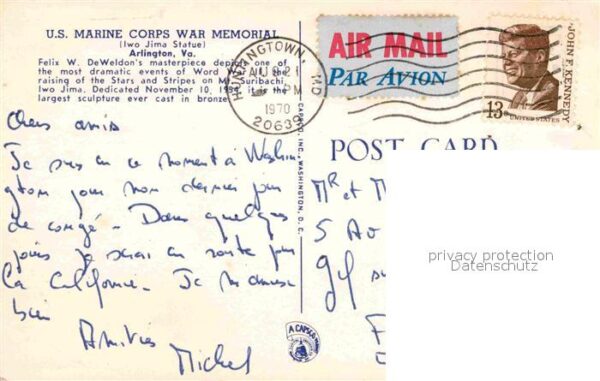 U.S. MARINE CORPS WAR MEMORIAL
(Iwo Jima Statue)
Arlington, Va.
Felix W. DeWeldon's masterpiece depicts one of
the most dramatic events of Word War II, the
raising of the Stars and Stripes on Mt. Suribachi,
Iwo Jima. Dedicated November 10, 1954, it is the
largest sculpture ever cast in bronze.
HUNTINGTOWN, MD
AUG 21
PM
1970
20639
AIR MAIL
PAR AVION
JOHN F. KENNEDY
13c
UNITED STATES
CAPSCO, INC., WASHINGTON, D. C.
POST CARD
Chers amis
Je suis en ce moment à Washin
gton pour mon dernier jour
de congé. Dans quelques
jours je serai en route pour
la Californie. Je m'amuse
bien
Amitiés
Michel
Mr et M
5 Av
Gif su
F
A CAPSCO
privacy protection
Datenschutz